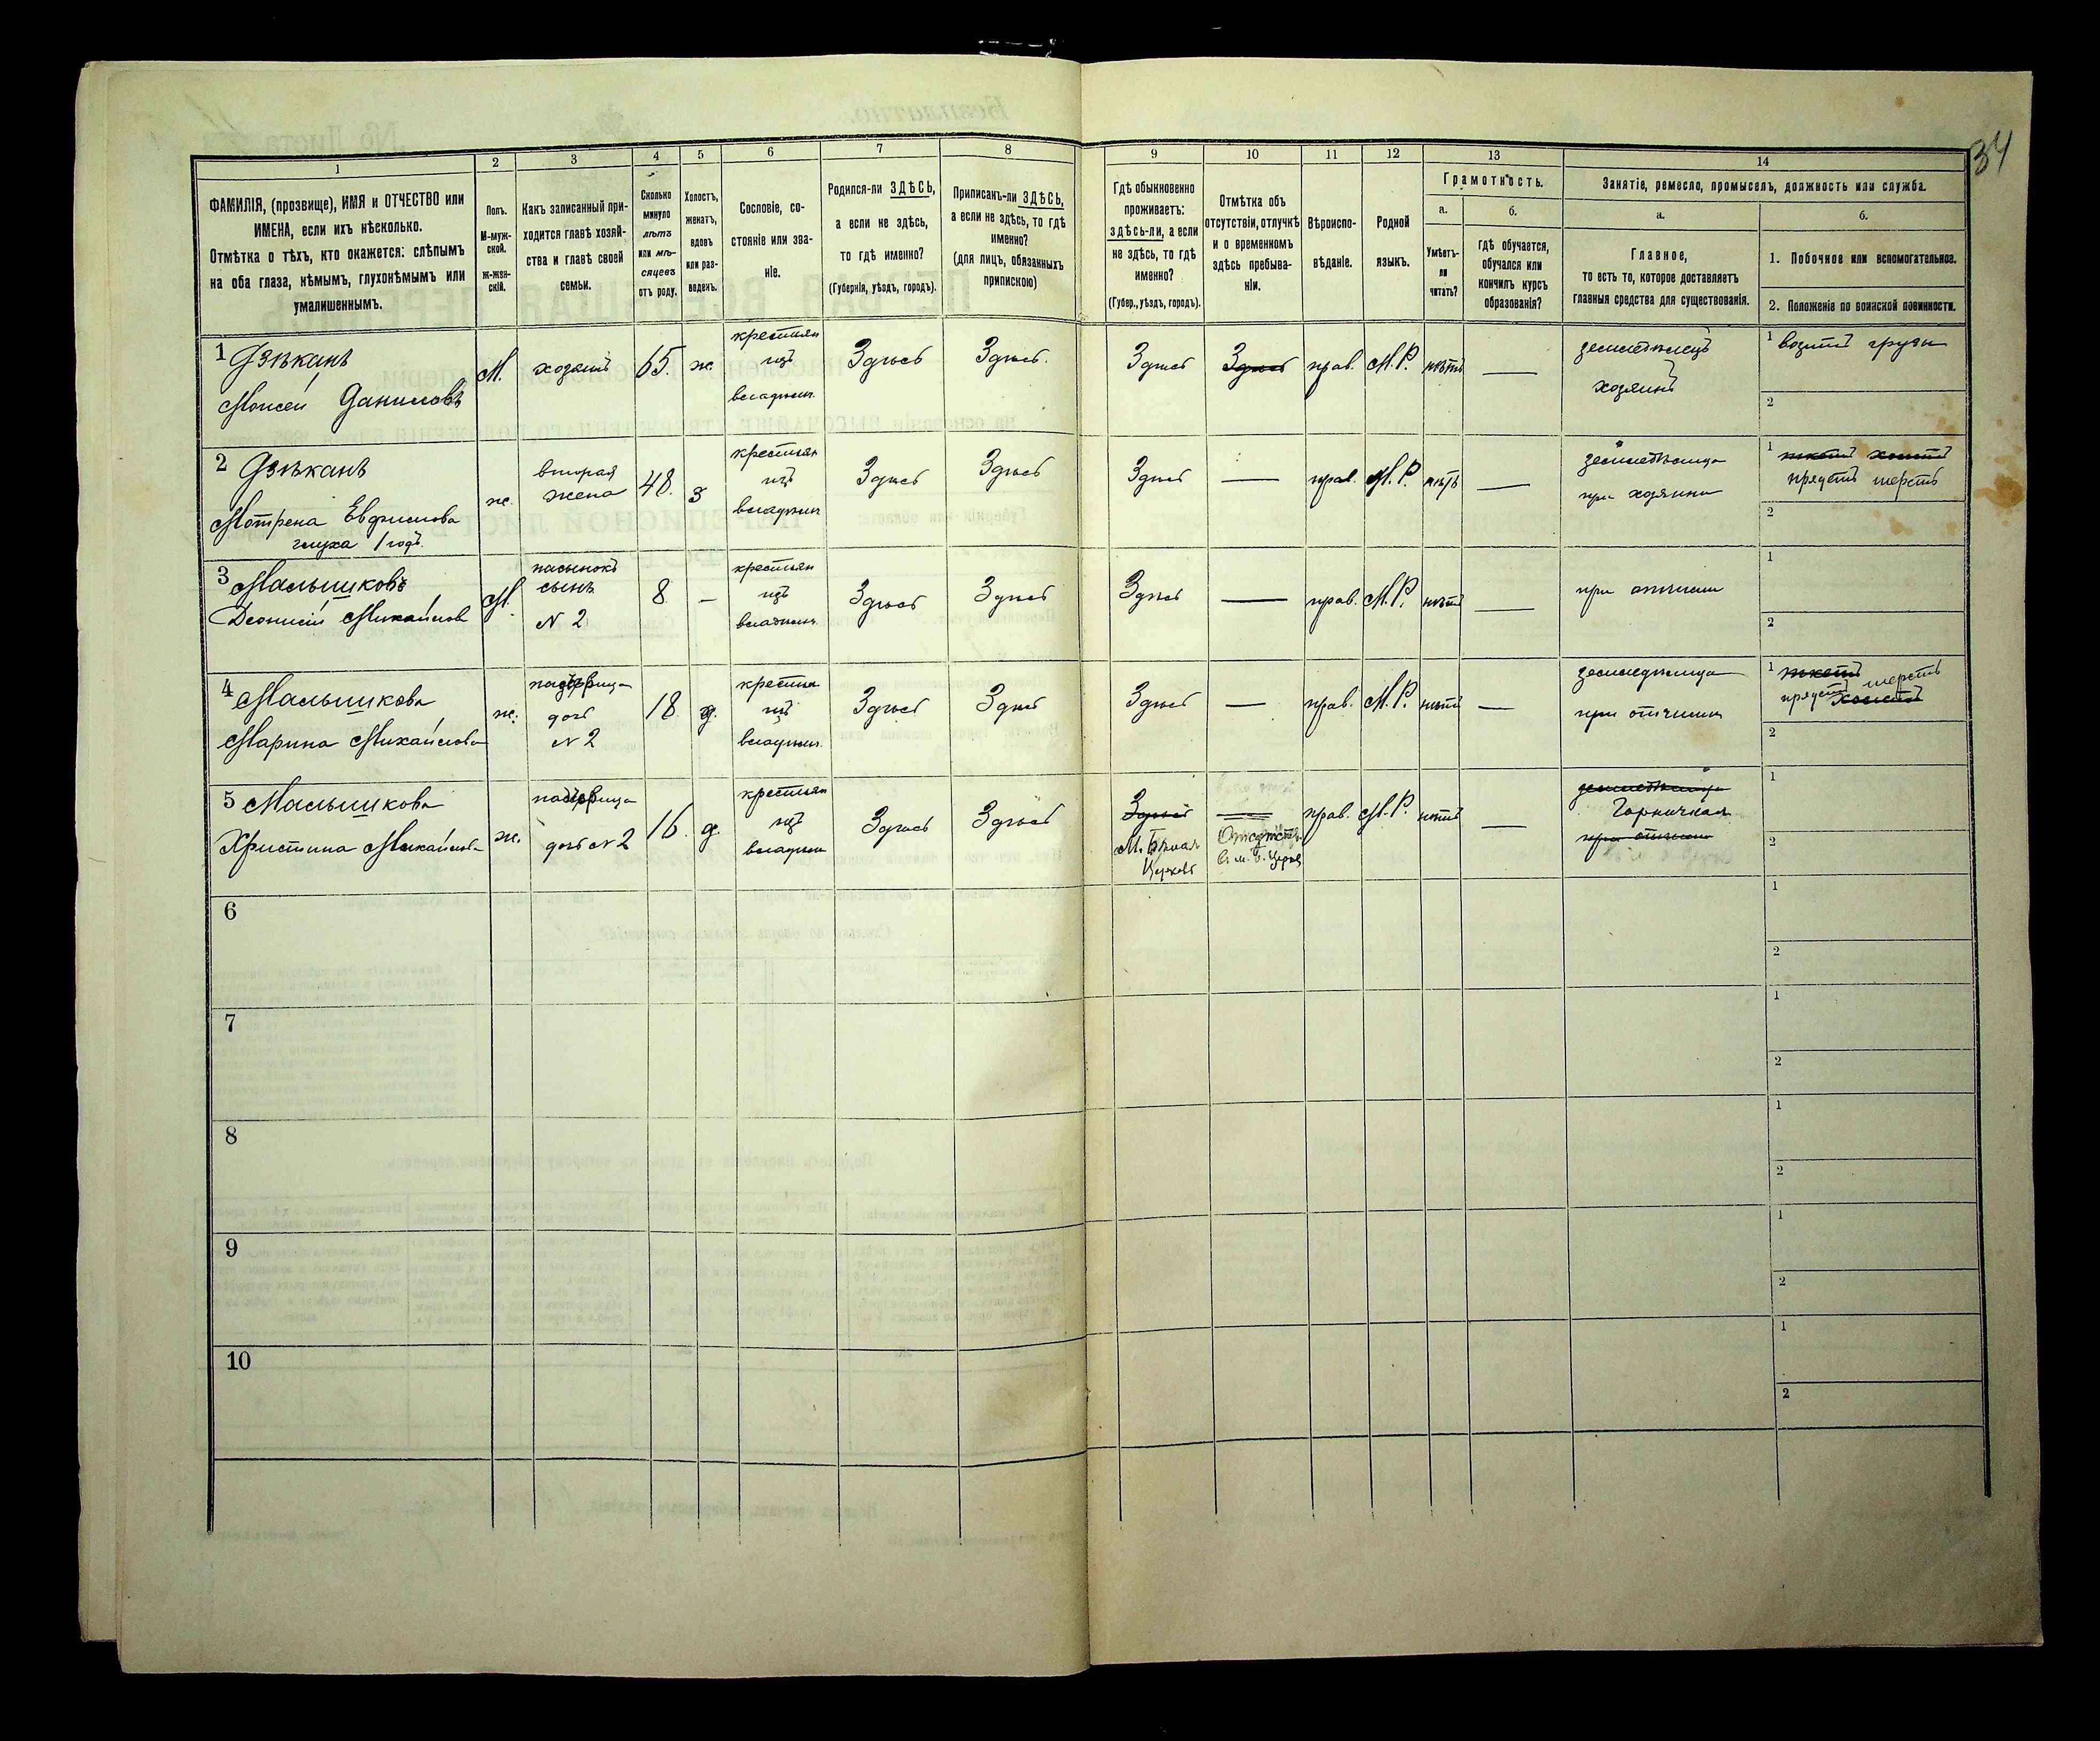 34
1
2
3
4
5
6
7
8
9
10
11
12
13
14
ФАМИЛІЯ, (прозвище), ИМЯ и ОТЧЕСТВО или
ИМЕНА, если ихъ нѣсколько.
Отмѣтка о тѣхъ, кто окажется: слѣпымъ
на оба глаза, нѣмымъ, глухонѣмымъ или
умалишеннымъ.
Полъ.
М-муж-
ской.
ж-жен-
скій.
Какъ записанный при-
ходится главѣ хозяй-
ства и главѣ своей
семьи.
Сколько
минуло
лѣтъ
или мѣ-
сяцевъ
отъ роду.
Холостъ,
женатъ,
вдовъ
или раз-
веденъ.
Сословіе, со-
стояніе или зва-
ніе.
Родился-ли ЗДѢСЬ,
а если не здѣсь,
то гдѣ именно?
(Губернія, уѣздъ, городъ).
Приписанъ-ли ЗДѢСЬ,
а если не здѣсь, то гдѣ
именно?
(для лицъ, обязанныхъ
припискою)
Гдѣ обыкновенно
проживаетъ:
здѣсь-ли, а если
не здѣсь, то гдѣ
именно?
(Губер., уѣздъ, городъ).
Отмѣтка объ
отсутствіи, отлучкѣ
и о временномъ
здѣсь пребыва-
ніи.
Вѣроиспо-
вѣданіе.
Родной
языкъ.
Грамотность.
а.
б.
Умѣетъ-
ли
читать?
Гдѣ обучается,
обучался или
кончилъ курсъ
образованія?
Занятіе, ремесло, промыселъ, должность или служба.
а.
б.
Главное,
то есть то, которое доставляетъ
главныя средства для существованія.
1. Побочное или вспомогательное.
2. Положеніе по воинской повинности.
1 Дзѣканъ
Моисей Даниловъ
М. хозяинъ 65. ж.
крестьян
изъ
владѣльч.
Здѣсь Здѣсь. Здѣсь Здѣсь прав. М.Р. нѣтъ —
земледѣлецъ
хозяинъ
1 возитъ грузы
2
2 Дзѣканъ
Мотрена Евфимова
глуха 1 годъ.
ж.
вторая
жена
48. з
крестьян
изъ
владѣльч
Здѣсь Здѣсь Здѣсь — прав. М.Р. нѣтъ —
земледѣлица
при хозяинѣ
1
прядетъ шерсть
2
3 Малышковъ
Деонисій Михайлов
М.
пасынокъ
сынъ
N 2
8 —
крестьян
изъ
владѣльч.
Здѣсь Здѣсь Здѣсь — прав. М.Р. нѣтъ —
при отчимѣ
1
2
4 Малышкова
Марина Михайлова
ж.
падчерица
дочь
N 2
18. д.
крестьян
изъ
владѣльч.
Здѣсь Здѣсь Здѣсь — прав. М.Р. нѣтъ —
земледѣлица
при отчимѣ
1
прядетъ шерсть
2
5 Малышкова
Христина Михайлова
ж.
падчерица
дочь N 2
16. д.
крестьян
изъ
владѣльч
Здѣсь Здѣсь Здѣсь
М. Бѣлая
Церковь
—
Отсутств.
въ м. Б. Церкв
прав. М.Р. нѣтъ —
земледѣлица
Горничная
при отчимѣ
1
2
6
1
2
7
1
2
8
1
2
9
1
2
10
1
2